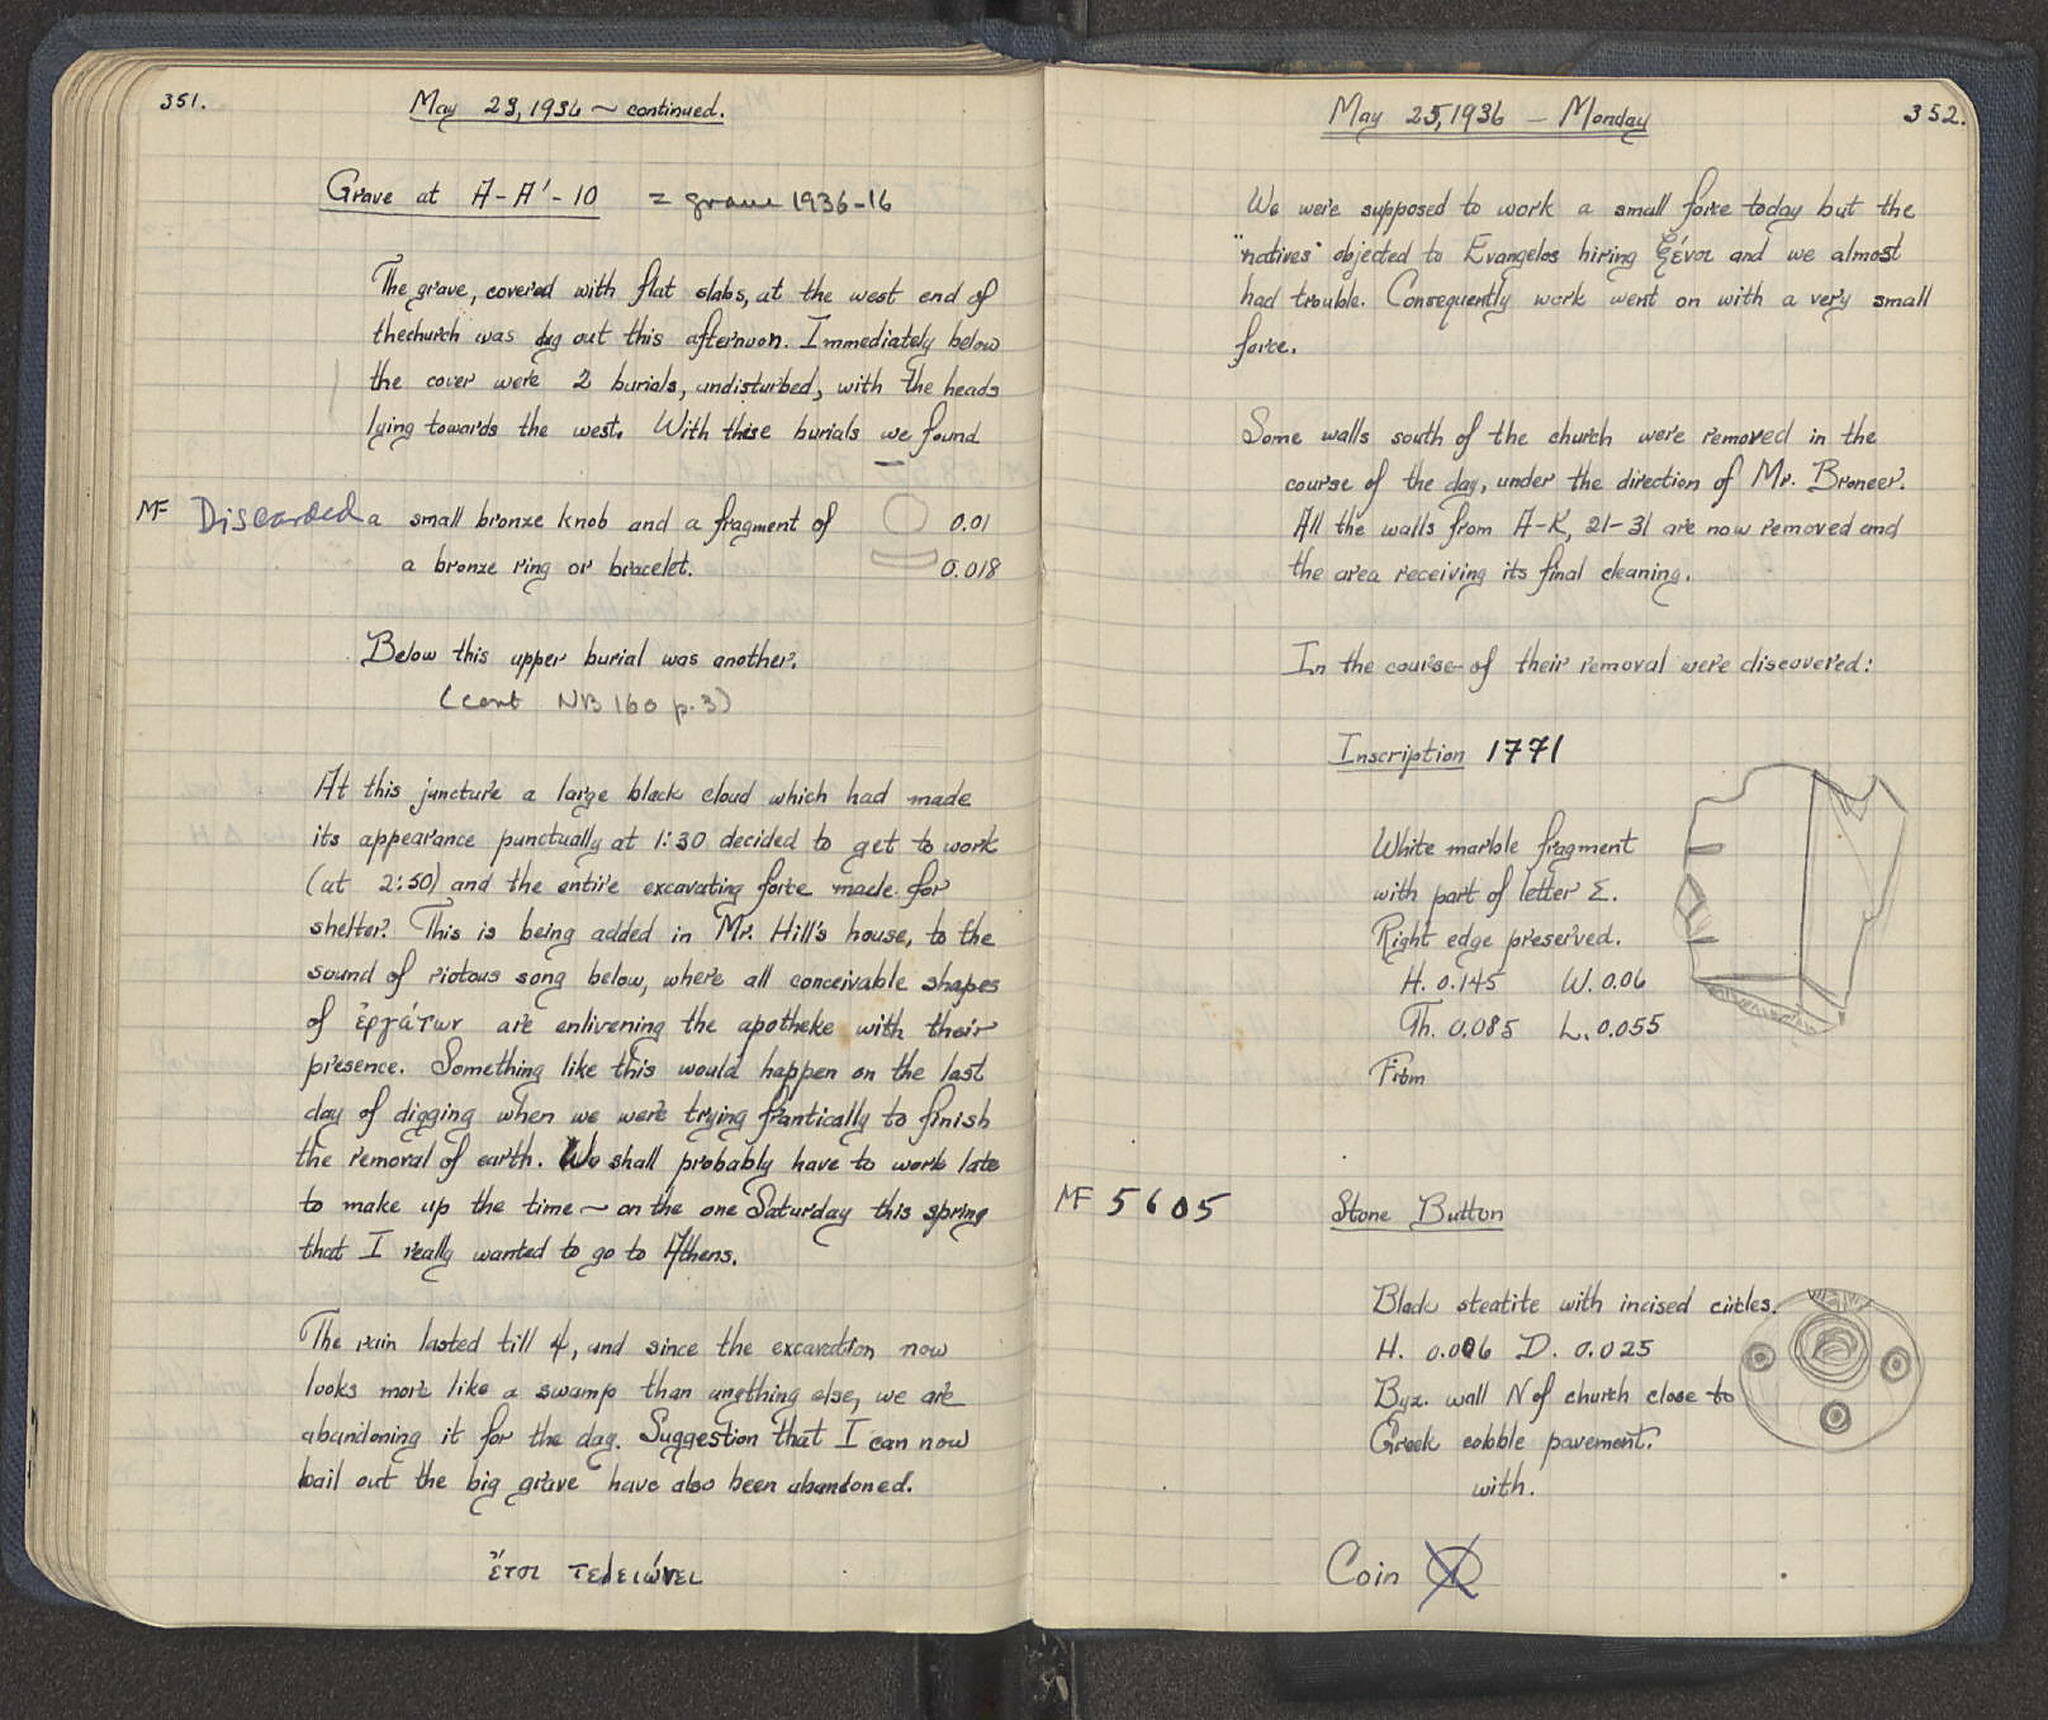 351.
May 23, 1936 ~ continued.
Grave at A-A'-10 = grave 1936-16
The grave, covered with flat slabs, at the west end of
the church was dug out this afternoon. Immediately below
the cover were 2 burials, undisturbed, with the heads
lying towards the west. With these burials we found
MF Discarded a small bronze knob and a fragment of 0.01
a bronze ring or bracelet. 0.018
Below this upper burial was another.
(cont NB 160 p. 3)
At this juncture a large black cloud which had made
its appearance punctually at 1:30 decided to get to work
(at 2:50) and the entire excavating force made for
shelter. This is being added in Mr. Hill's house, to the
sound of riotous song below, where all conceivable shapes
of ἐργάτων are enlivening the apotheke with their
presence. Something like this would happen on the last
day of digging when we were trying frantically to finish
the removal of earth. We shall probably have to work late
to make up the time ~ on the one Saturday this spring
that I really wanted to go to Athens.
The rain lasted till 4, and since the excavation now
looks more like a swamp than anything else, we are
abandoning it for the day. Suggestion that I can now
bail out the big grave have also been abandoned.
ἔτσι τελειώνει
May 25, 1936 - Monday
352.
We were supposed to work a small force today but the
"natives" objected to Evangelos hiring ξένοι and we almost
had trouble. Consequently work went on with a very small
force.
Some walls south of the church were removed in the
course of the day, under the direction of Mr. Broneer.
All the walls from A-K, 21-31 are now removed and
the area receiving its final cleaning.
In the course of their removal were discovered:
Inscription 1771
White marble fragment
with part of letter Σ.
Right edge preserved.
H. 0.145 W. 0.06
Th. 0.085 L. 0.055
From
MF 5605 Stone Button
Black steatite with incised circles.
H. 0.006 D. 0.025
Byz. wall N of church close to
Greek cobble pavement.
with.
Coin